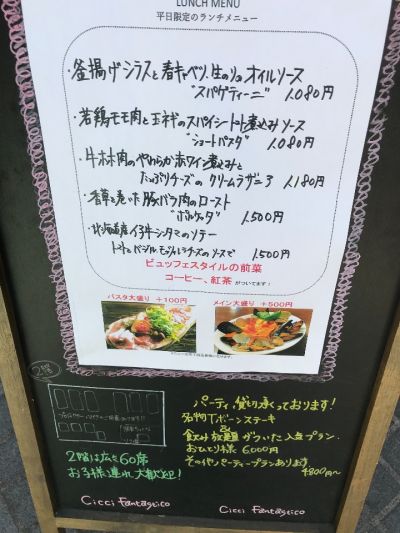 LUNCH MENU
平日限定のランチメニュー
・釜揚げシラスと春キャベツ、生のりのオイルソース
"スパゲティーニ" 1,080円
・若鶏モモ肉と玉ネギのスパイシートマト煮込みソース
"ショートパスタ" 1,080円
・牛ホホ肉のやわらか赤ワイン煮込みと
たっぷりチーズの クリームラザニア 1,180円
・香草を巻いた豚バラ肉のロースト
"ポルケッタ" 1,500円
・北海道産イタヤ牛シンタマのソテー
トマトとバジル モッツァレラチーズのソースで 1,500円
ビュッフェスタイルの前菜
コーヒー、紅茶 がついてます!
パスタ大盛り +100円 メイン大盛り +500円
2階
2階は広々60席
お子様連れ大歓迎!
Cicci Fantastico
パーティ、貸切承っております!
名物Tボーンステーキ
&
飲み放題がついた人気プラン。
おひとり様 6,000円
その他パーティープランあります
4800円〜
Cicci Fantastico